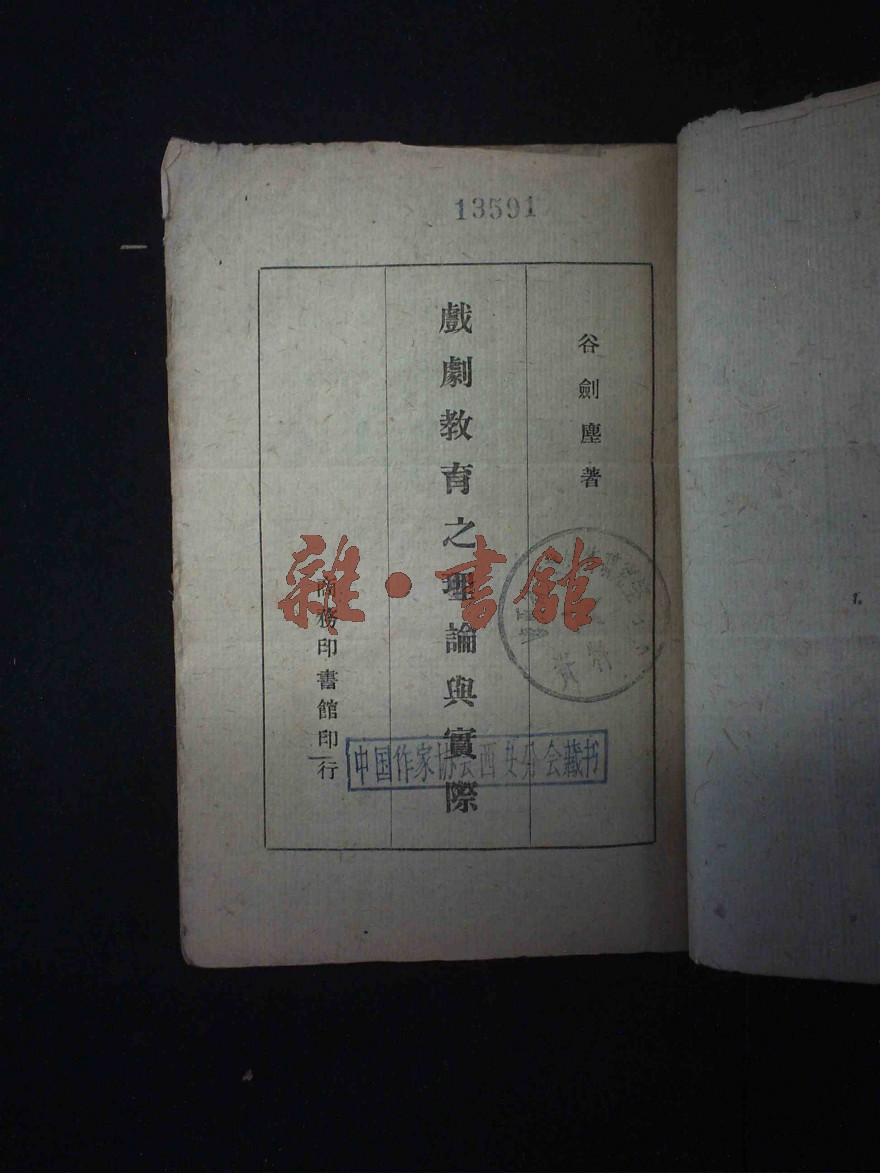 13591
谷劍塵著
戲劇教育之理論與實際
商務印書館印行
雜·書館
中国作家协会西安分会藏书
資料